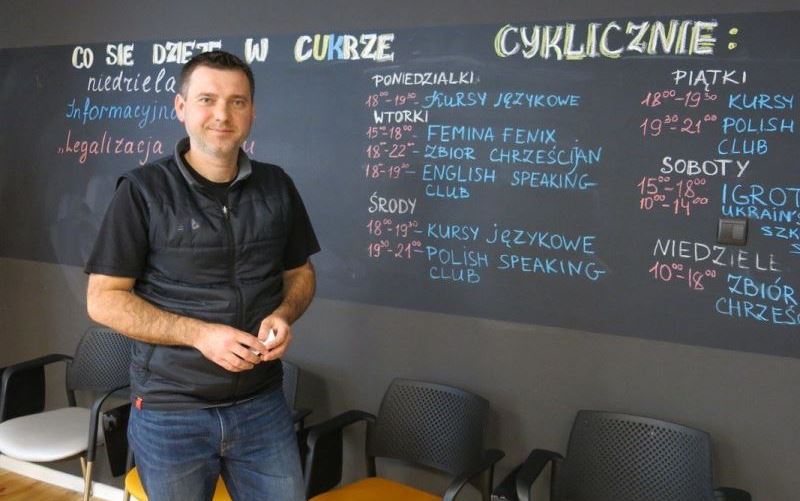 CO SIĘ DZIEJE W CUKRZE
niedziela
Informacyjn
"Legalizacja
CYKLICZNIE:
PONIEDZIAŁKI
18⁰⁰-19³⁰- KURSY JĘZYKOWE
WTORKI
15⁰⁰-18⁰⁰- FEMINA FENIX
ZBIÓR CHRZEŚCIJAN
ENGLISH SPEAKING
CLUB
ŚRODY
18⁰⁰-19³⁰- KURSY JĘZYKOWE
19³⁰-21⁰⁰- POLISH SPEAKING
CLUB
PIĄTKI
18⁰⁰-19³⁰ KURSY
19³⁰-21⁰⁰ POLISH
CLUB
SOBOTY
15⁰⁰-18⁰⁰ IGROT
10⁰⁰-14⁰⁰ UKRAIN'S
SZK
NIEDZIELE
10⁰⁰-18⁰⁰ ZBIÓR
CHRZEŚC